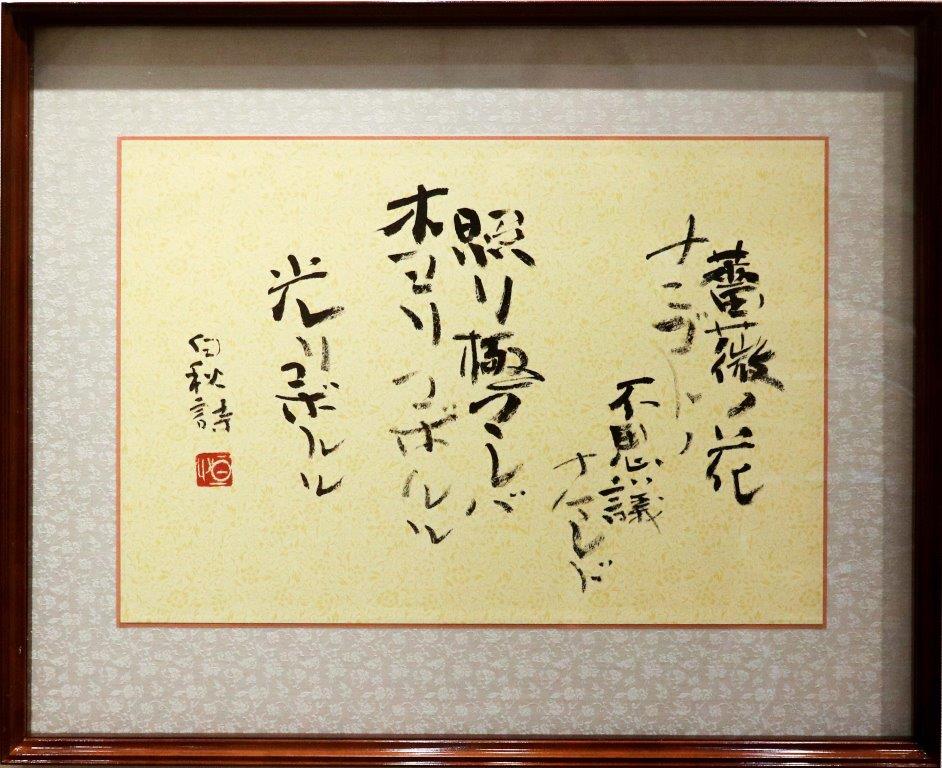 薔薇ノ花
ナニゴトノ
不思議
ナケレド
照リ極マレバ
木ヨリコボルル
光リコボルル
白秋詩